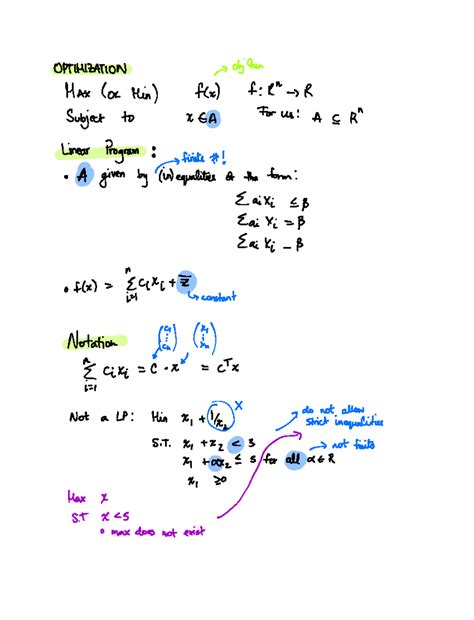 OPTIMIZATION
obj fun
Max (or Min) f(x) f: Rⁿ → R
Subject to x ∈ A For us: A ⊆ Rⁿ
Linear Program:
finite #!
• A given by (in)equalities of the form:
Σ aᵢ xᵢ ≤ β
Σ aᵢ xᵢ = β
Σ aᵢ xᵢ _ β
• f(x) = Σᵢ₌₁ⁿ cᵢ xᵢ + z̄
constant
Notation (c₁ ⋮ cₙ) (x₁ ⋮ xₙ)
Σᵢ₌₁ⁿ cᵢ xᵢ = c · x = cᵀx
Not a LP: Min x₁ + 1/x₂ X
do not allow
strict inequalities
S.T. x₁ + x₂ < 3
not finite
x₁ + αx₂ ≤ 5 for all α ∈ R
x₁ ≥0
Max x
S.T x < 5
• max does not exist